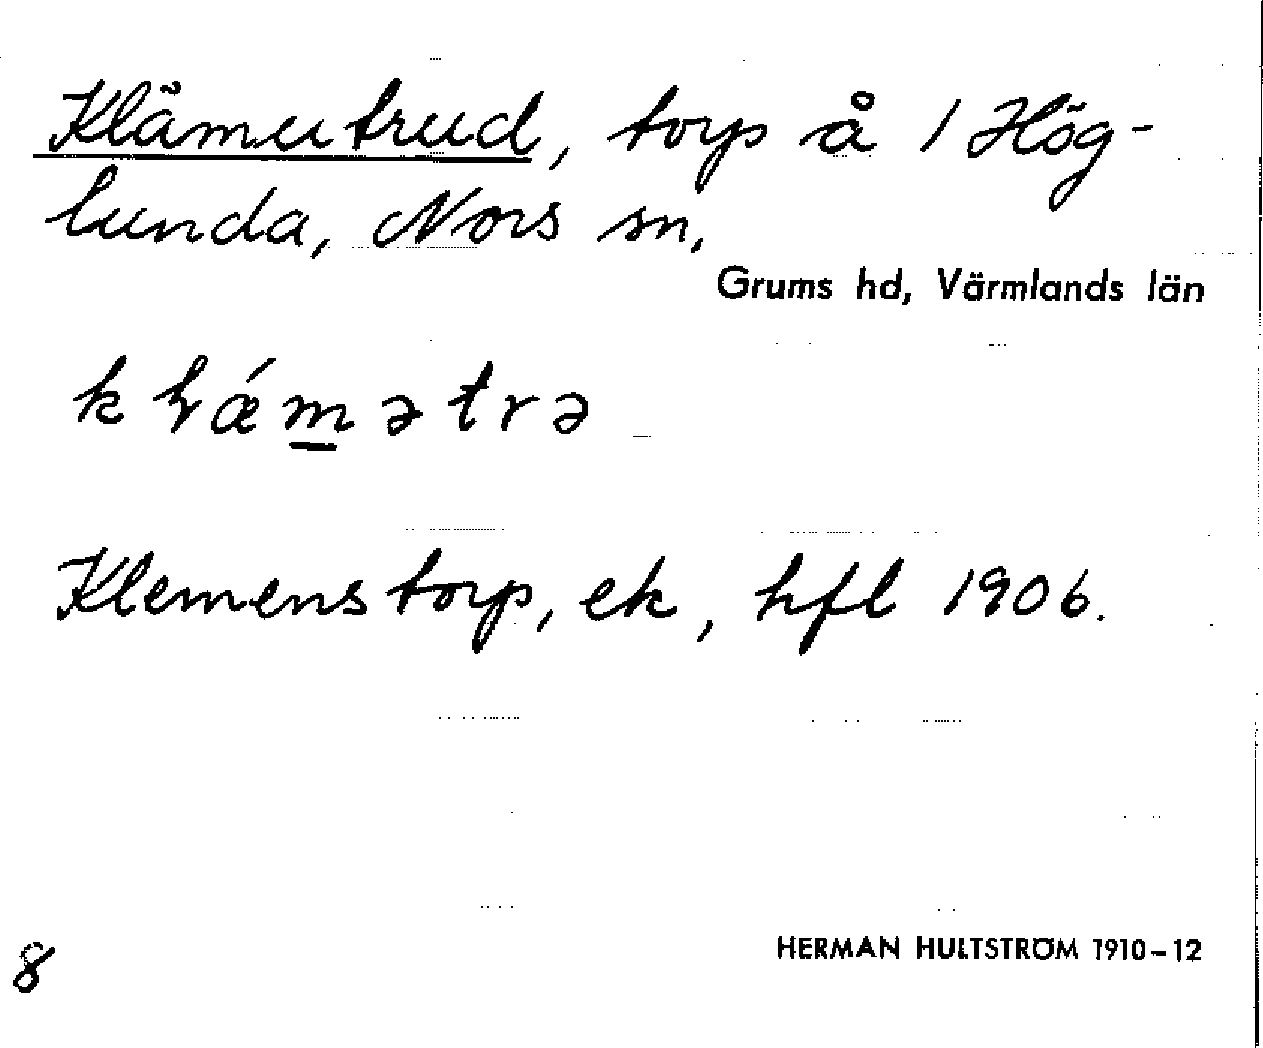 Klämutrud, torp å 1 Hög-
lunda, Nors sn,
Grums hd, Värmlands län
kɽǽmətrə
Klemenstorp, ek, hfl 1906.
8
HERMAN HULTSTRÖM 1910–12